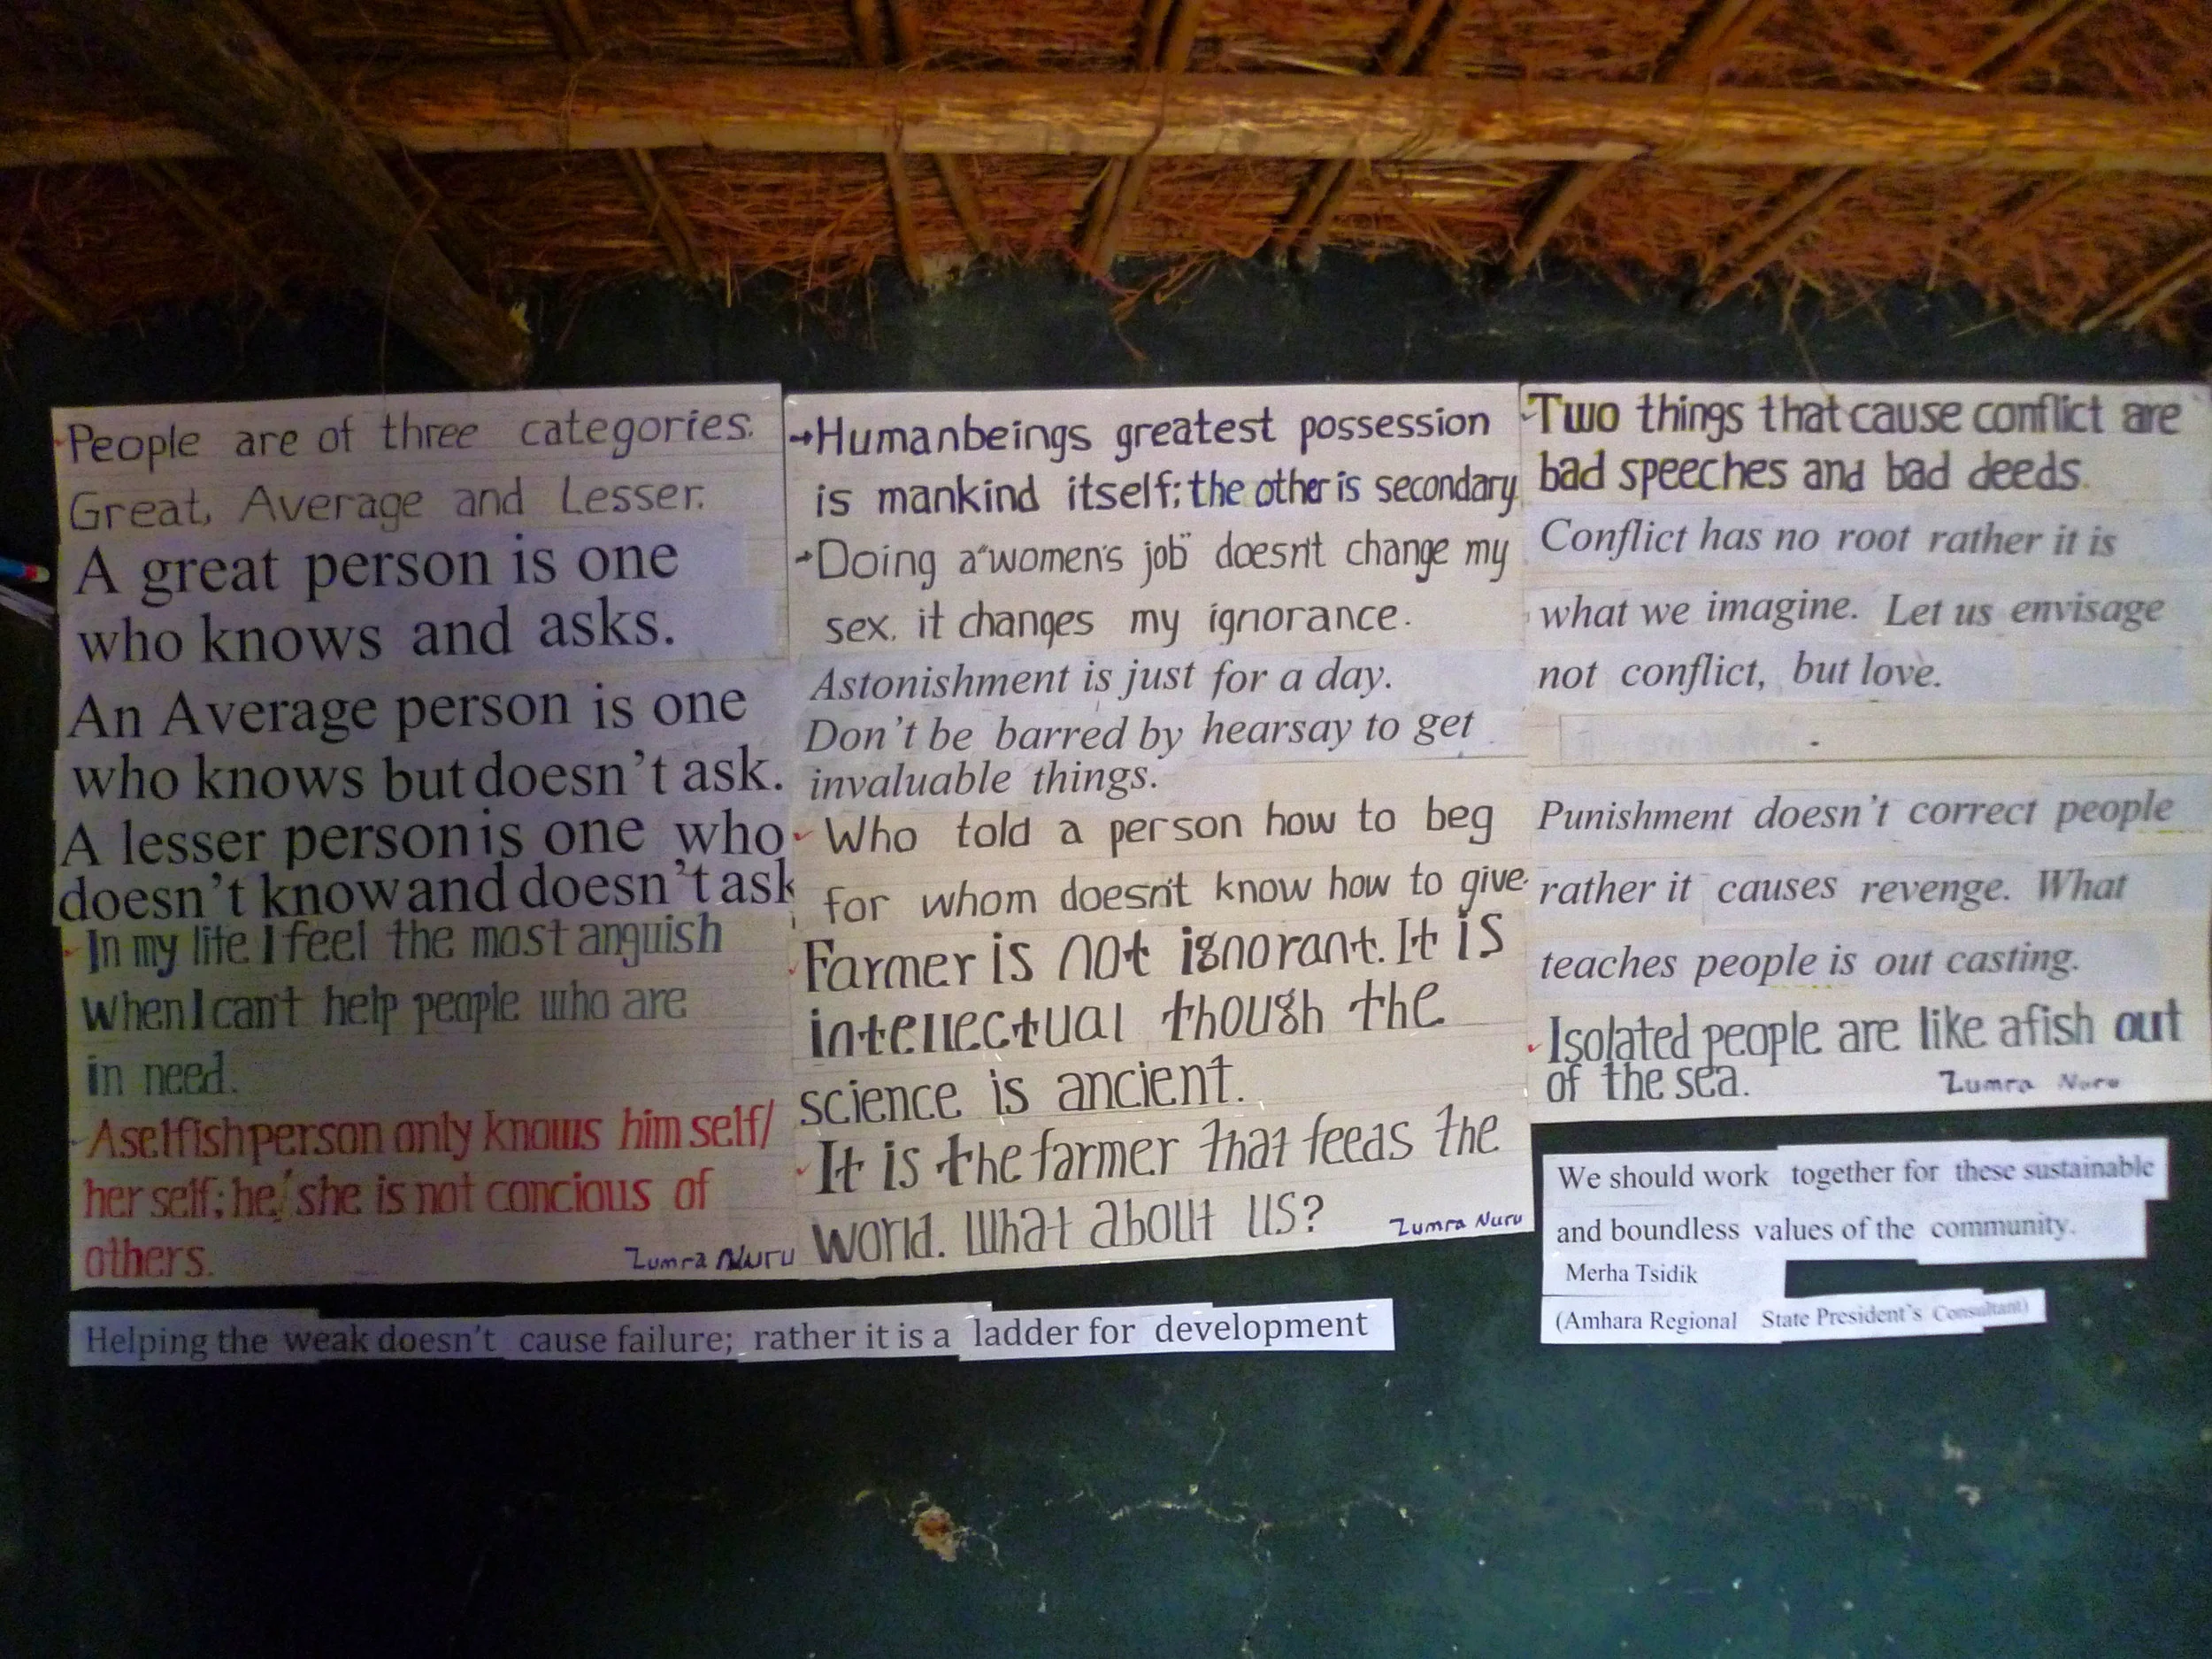 People are of three categories.
Great, Average and Lesser.
A great person is one
who knows and asks.
An Average person is one
who knows but doesn't ask.
A lesser person is one who
doesn't know and doesn't ask
In my life I feel the most anguish
when I can't help people who are
in need.
A selfish person only knows him self/
her self; he/she is not concious of
others.
Zumra Nuru
→Humanbeings greatest possession
is mankind itself; the other is secondary
→Doing a "women's job" doesn't change my
sex, it changes my ignorance.
Astonishment is just for a day.
Don't be barred by hearsay to get
invaluable things.
Who told a person how to beg
for whom doesn't know how to give.
Farmer is not ignorant. It is
intellectual though the
science is ancient.
It is the farmer that feeds the
world. What about us?
Zumra Nuru
Two things that cause conflict are
bad speeches and bad deeds.
Conflict has no root rather it is
what we imagine. Let us envisage
not conflict, but love.
Punishment doesn't correct people
rather it causes revenge. What
teaches people is out casting.
Isolated people are like a fish out
of the sea.
Zumra Nuru
We should work together for these sustainable
and boundless values of the community.
Merha Tsidik
(Amhara Regional State President's Consultant)
Helping the weak doesn't cause failure; rather it is a ladder for development